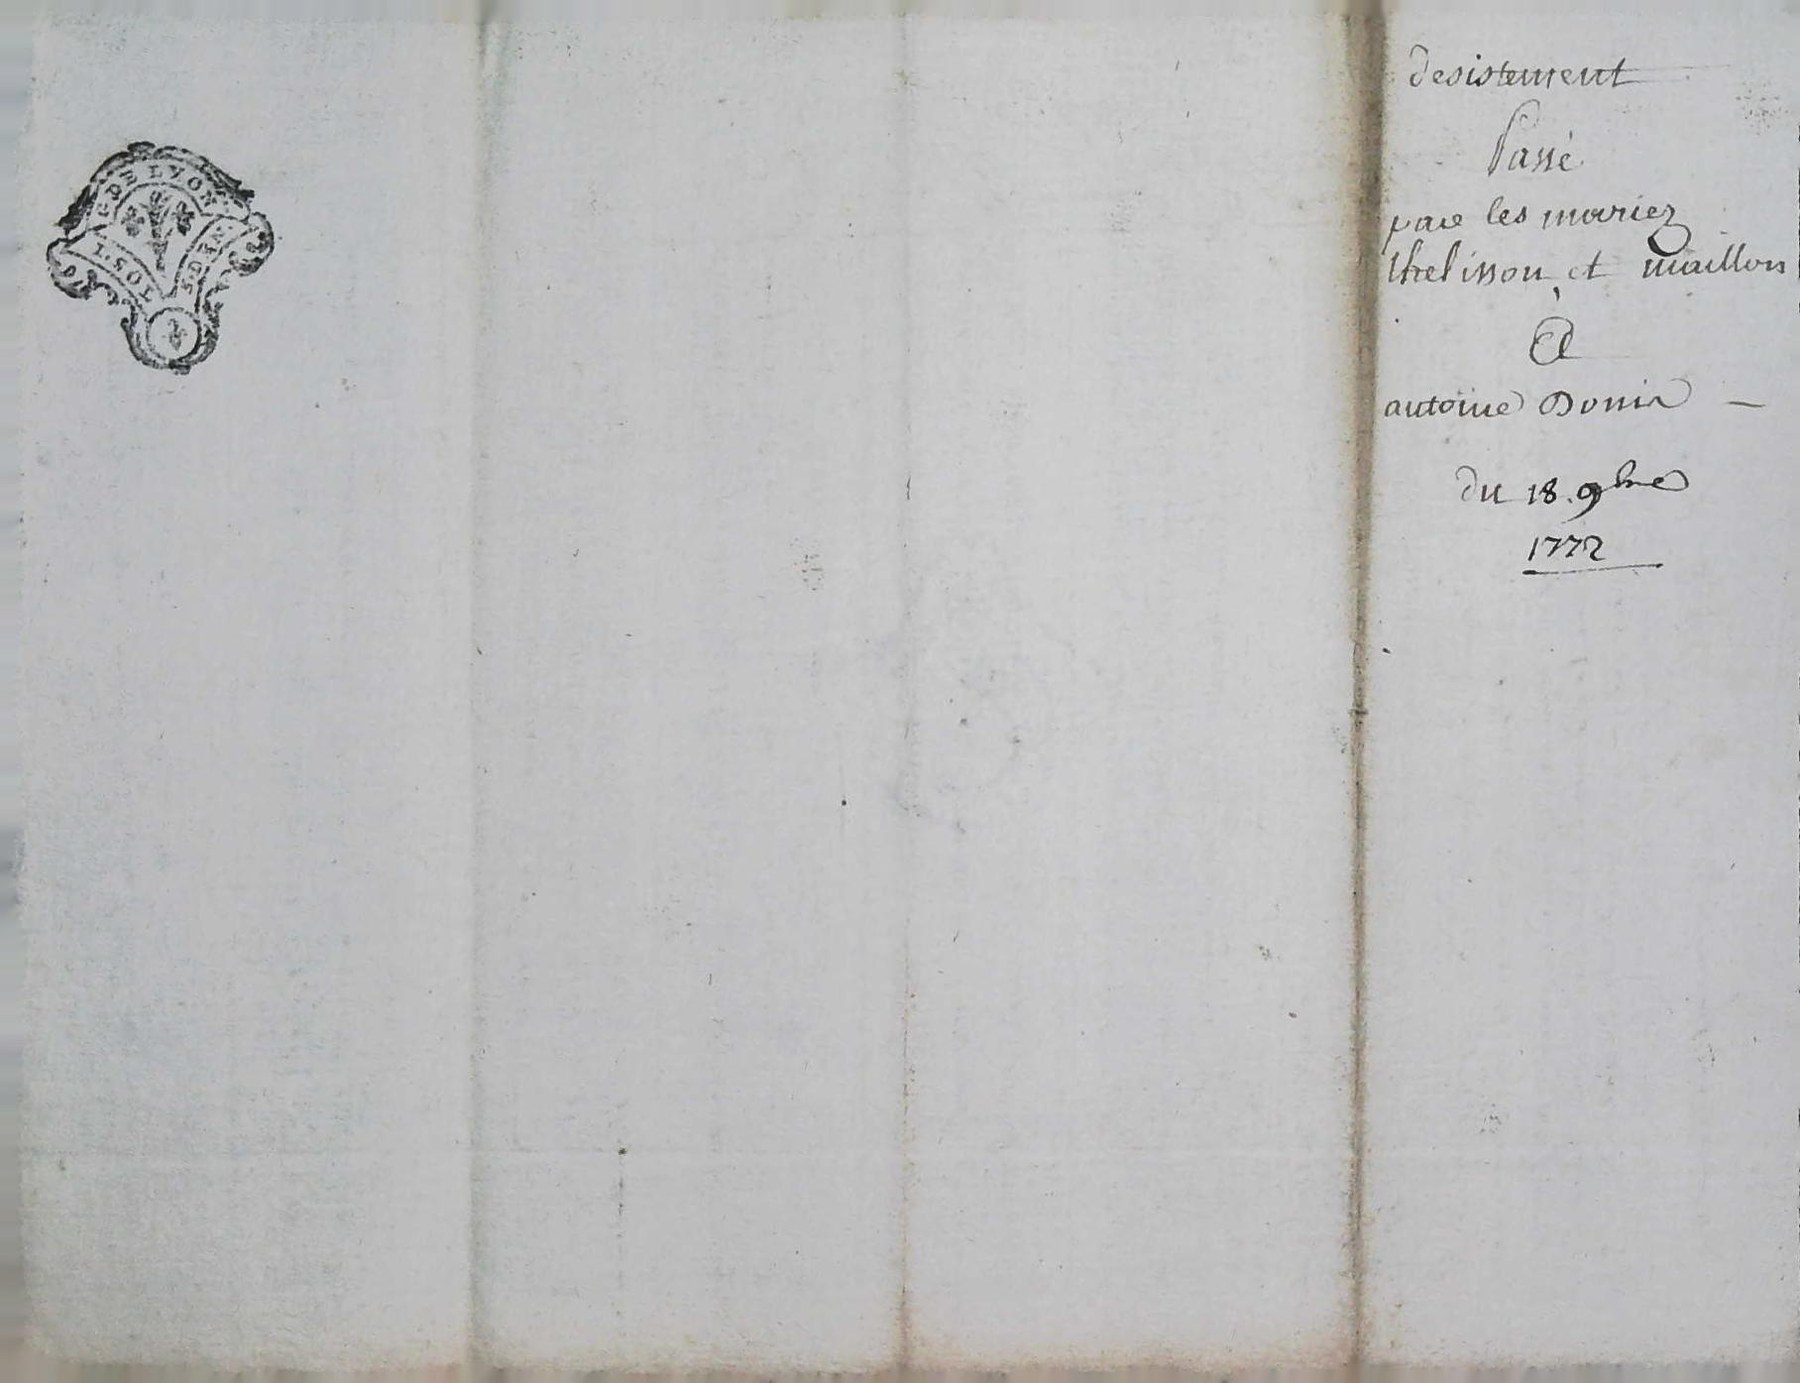 G. DE LYON
1. SOL
5. DEN
desistement
Passé
par les mariez
thelisson et maillon
A
antoine Donis
du 18. 9bre
1772